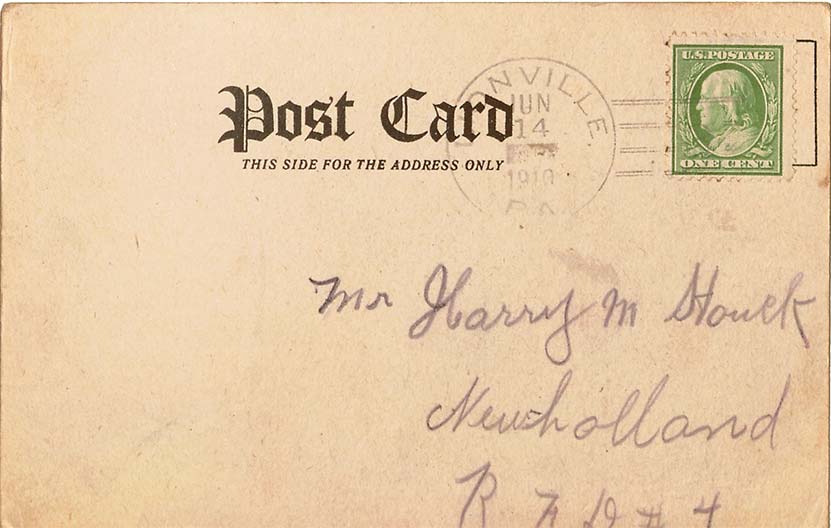 U.S. POSTAGE
ONE CENT
Post Card
THIS SIDE FOR THE ADDRESS ONLY
ONVILLE,
JUN
14
1910
PA
Mr Harry M Stouck
Newholland
R F D # 4